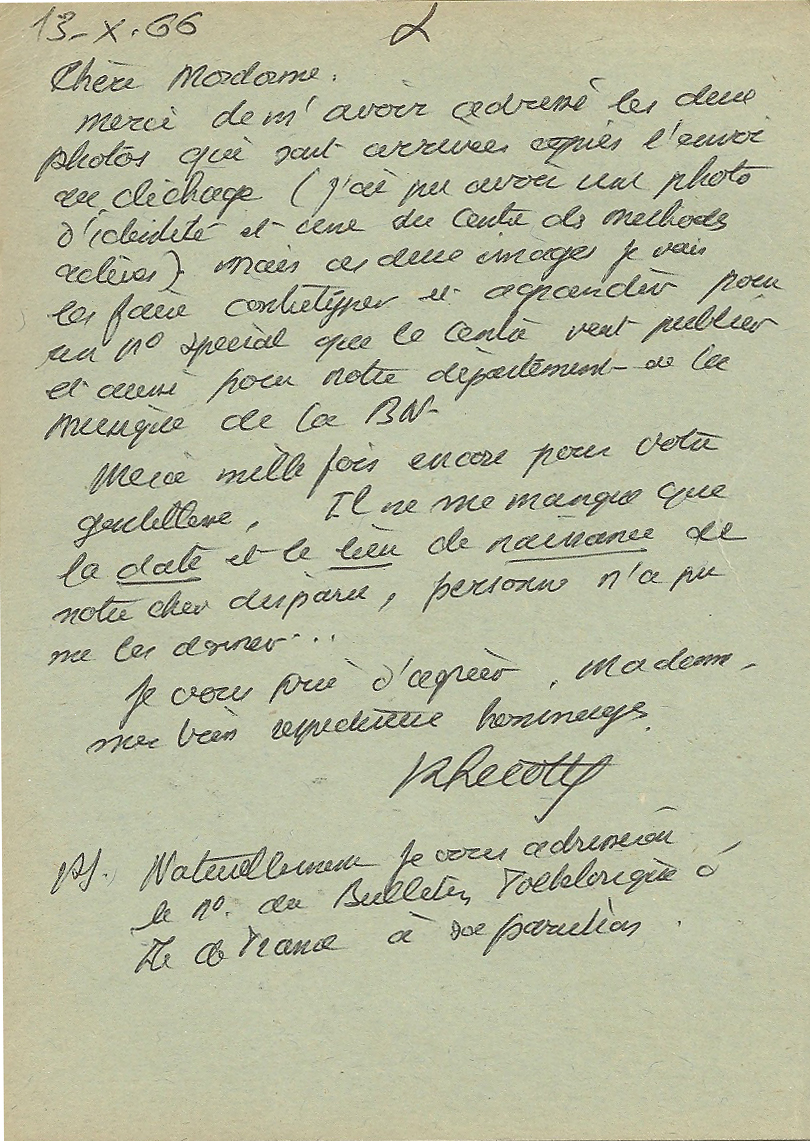 13-X-66
Chère Madame.
merci de m'avoir adressé les deux
photos qui sont arrivées après l'envoi
du clichage (j'ai pu avoir une photo
d'identité et une du Centre des methodes
actives). Mais ces deux images je vais
les faire contretyper et agrandir pour
un n° special que le Centre veut publier
et aussi pour notre département de la
musique de la BN-
Merci mille fois encore pour votre
gentillesse, Il ne me manque que
la date et le lieu de naissance de
notre cher disparu, personne n'a pu
me les donner...
Je vous prie d'agréer, Madame,
mes bien respectueux hommages.
PS. Naturellement je vous adresserai
le n°. du Bulletin Folklorique d'
Ile de France à sa parution.